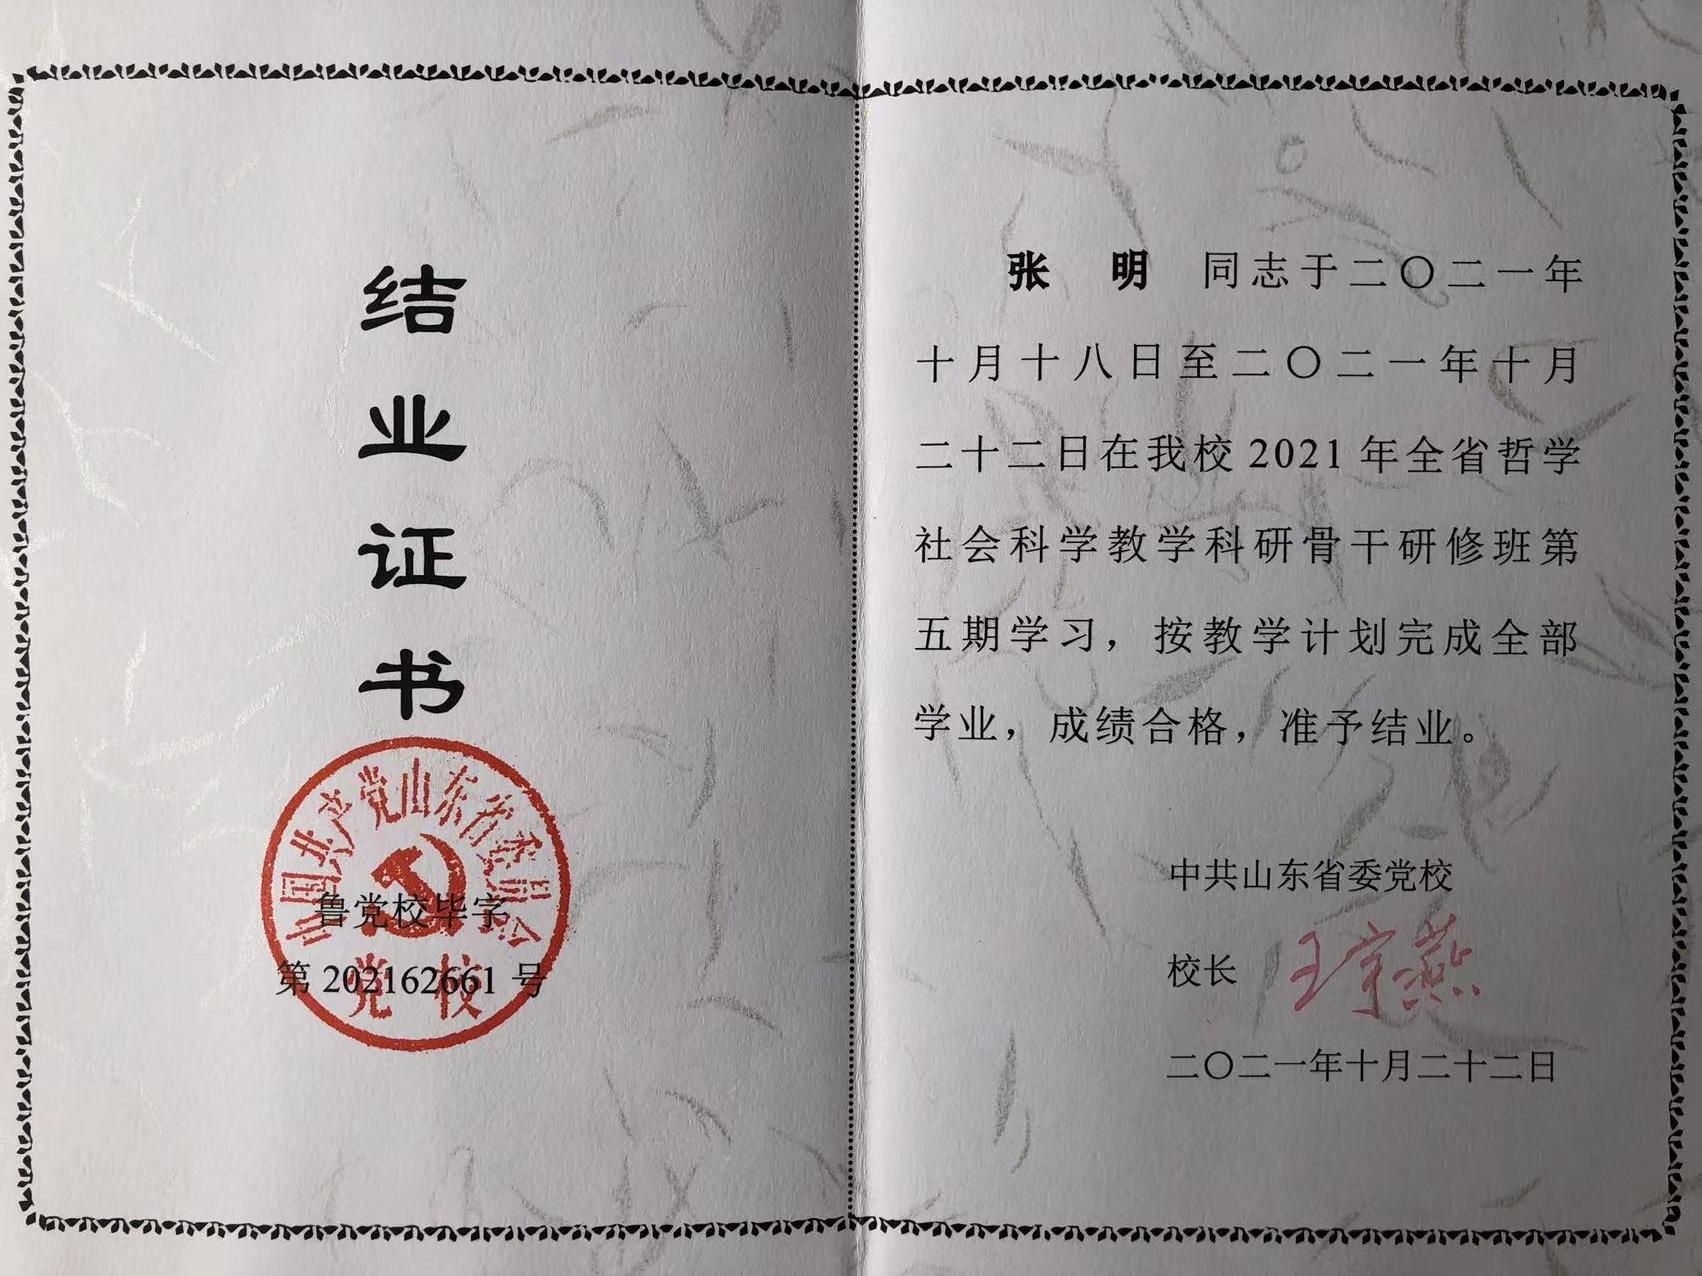 结业证书
中国共产党山东省委员会
党校
鲁党校毕字
第 202162661 号
张 明 同志于二〇二一年
十月十八日至二〇二一年十月
二十二日在我校 2021 年全省哲学
社会科学教学科研骨干研修班第
五期学习，按教学计划完成全部
学业，成绩合格，准予结业。
中共山东省委党校
校长 王宇燕
二〇二一年十月二十二日